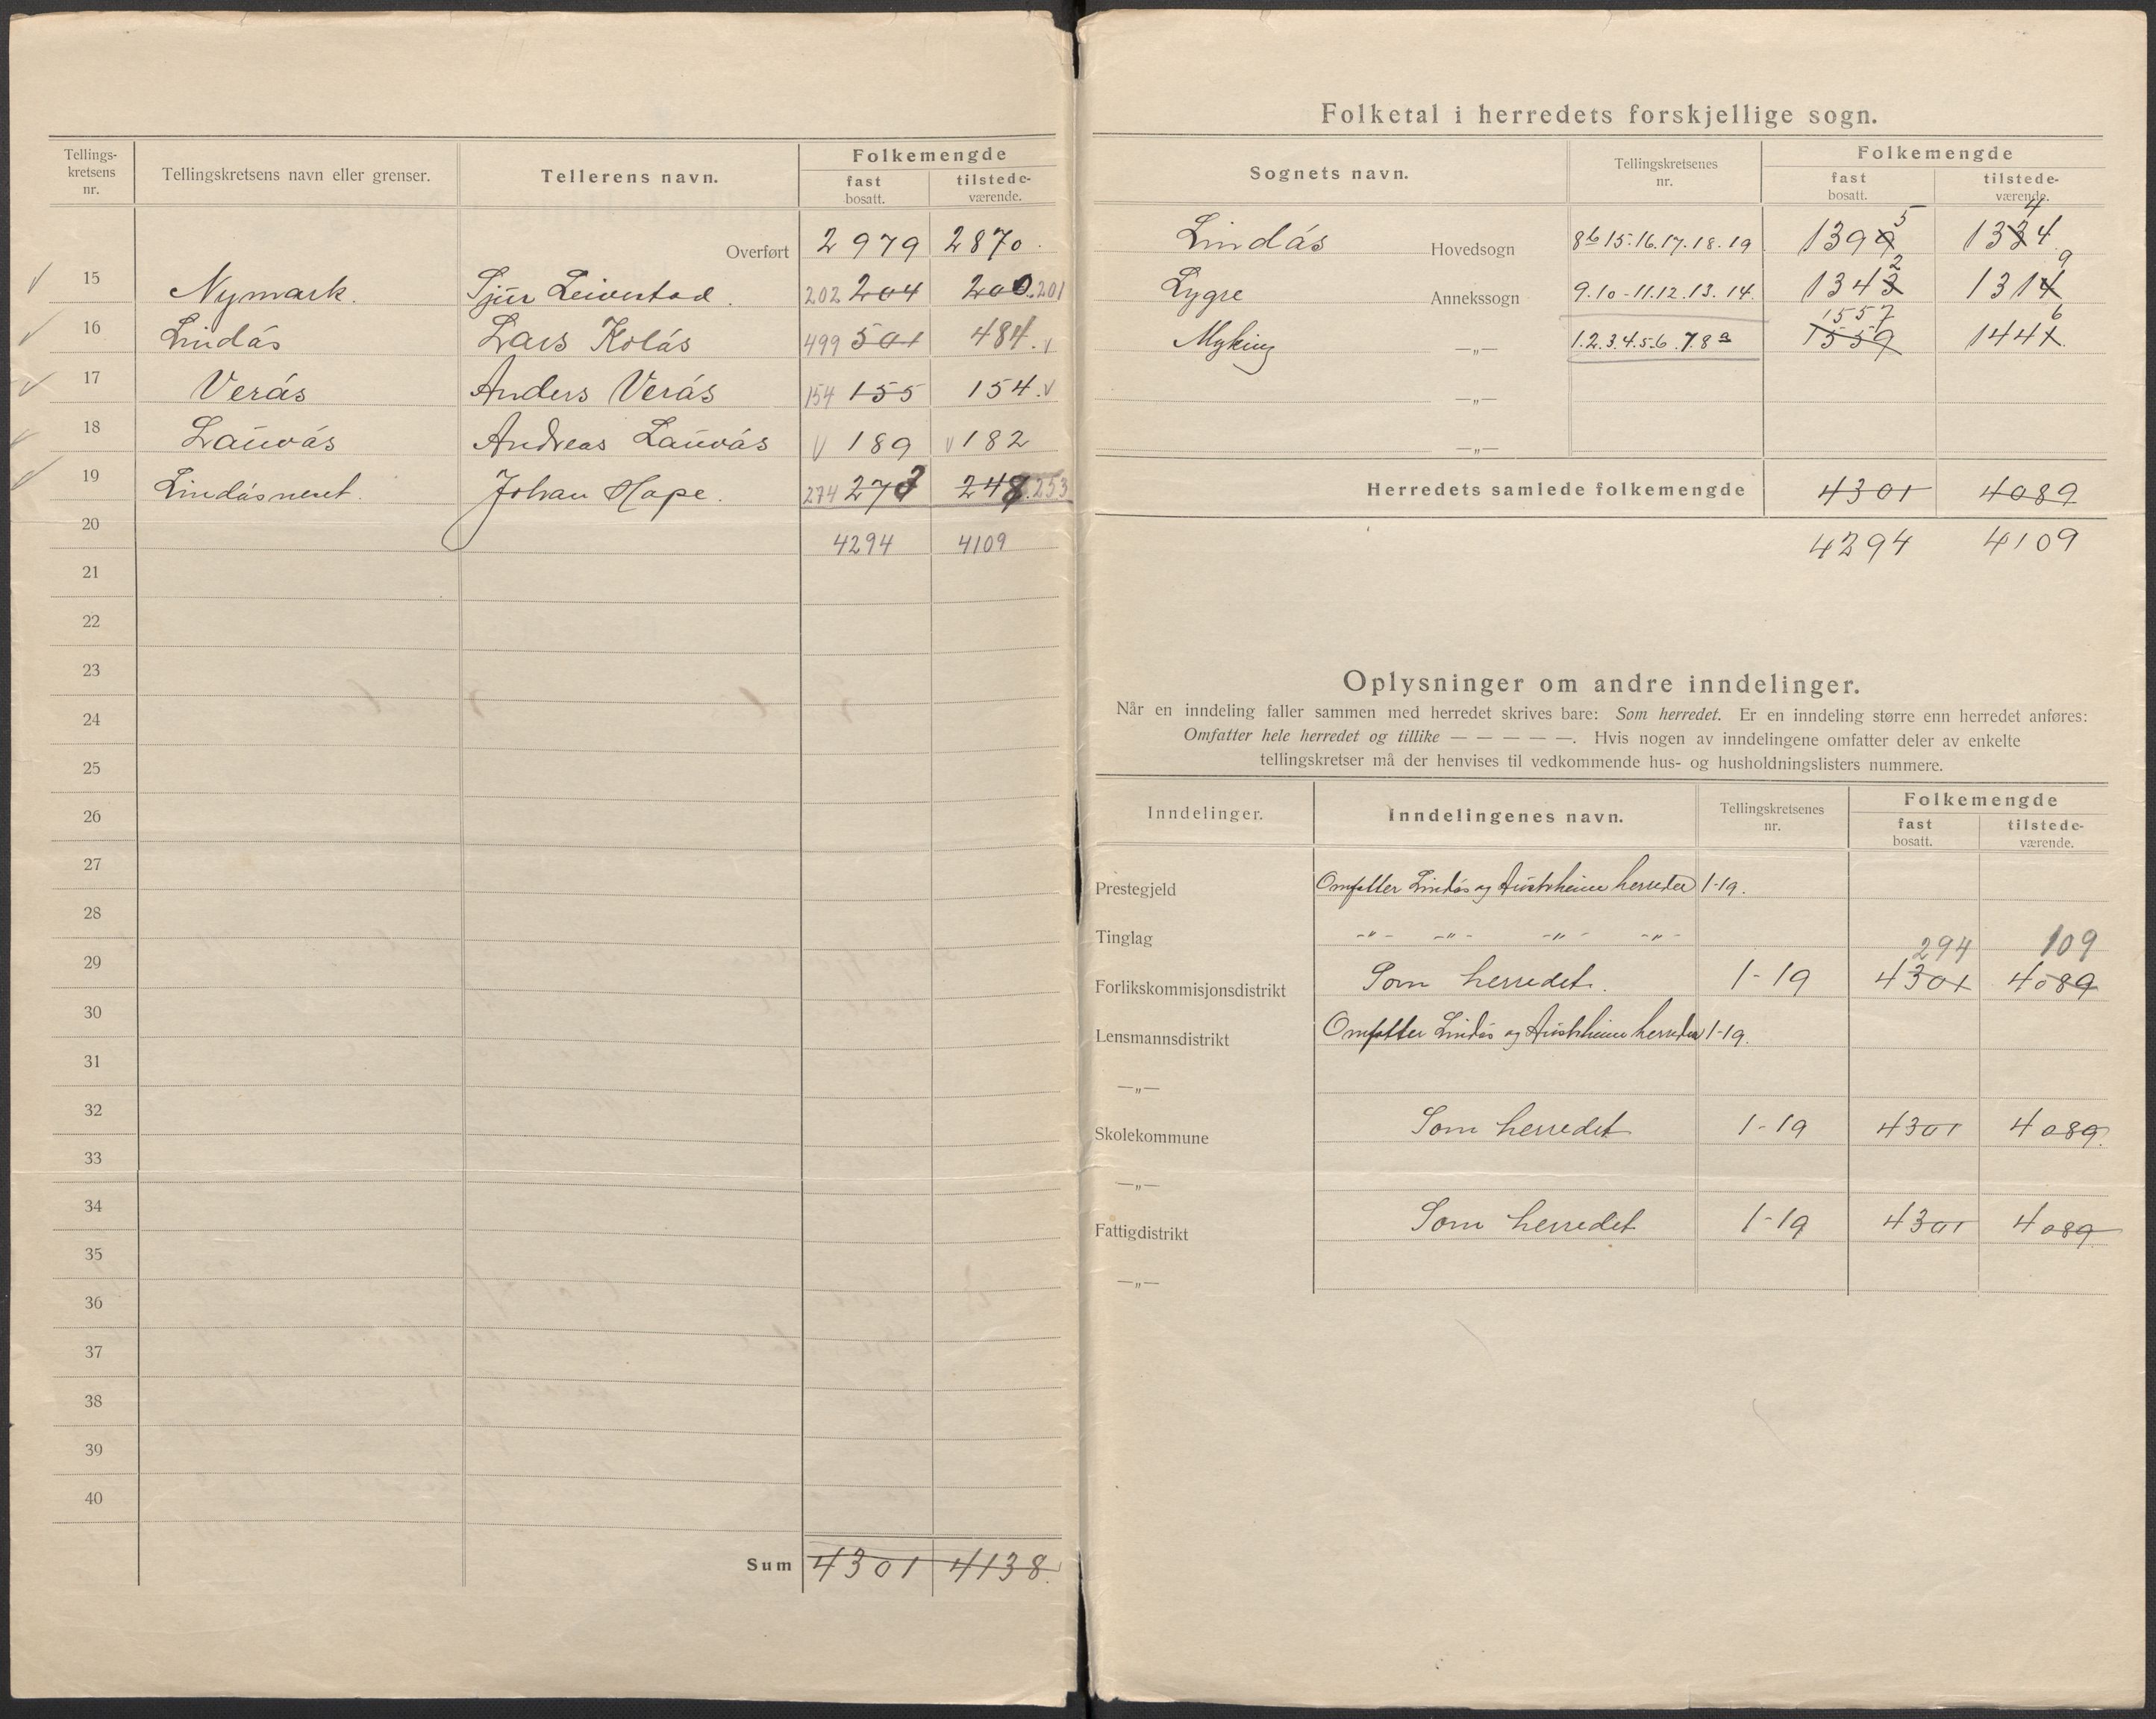 Tellings-
kretsens
nr.
Tellingskretsens navn eller grenser.
Tellerens navn.
Folkemengde
fast
bosatt.
tilstede-
værende.
Overført 2979 2870.
15 Nymark. Sjur Leivestad. 202 204 200. 201
16 Lindås Lars Kolås 499 501 484. v
17 Verås Anders Verås 154 155 154. v
18 Lauvås Andreas Lauvås v 189 v 182
19 Lindåsneset. Johan Hope. 274 273 248. 253
20 4294 4109
21
22
23
24
25
26
27
28
29
30
31
32
33
34
35
36
37
38
39
40
Sum 4301 4138.
Folketal i herredets forskjellige sogn.
Sognets navn.
Tellingskretsenes
nr.
Folkemengde
fast
bosatt.
tilstede-
værende.
5 4
Lindås Hovedsogn 8b 15.16.17.18.19 1399 1334.
2 9
Lygre Annekssogn 9.10-11.12.13.14. 1343 1314
1557 6
Myking —„— 1.2.3.4.5.6.7 8a 1559 1441.
—„—
—„—
Herredets samlede folkemengde 4301 4089
4294 4109
Oplysninger om andre inndelinger.
Når en inndeling faller sammen med herredet skrives bare: Som herredet. Er en inndeling større enn herredet anføres:
Omfatter hele herredet og tillike — — — — —. Hvis nogen av inndelingene omfatter deler av enkelte
tellingskretser må der henvises til vedkommende hus- og husholdningslisters nummere.
Inndelinger.
Inndelingenes navn.
Tellingskretsenes
nr.
Folkemengde
fast
bosatt.
tilstede-
værende.
Prestegjeld Omfatter Lindås og Austrheim herreder 1-19.
Tinglag -„- -„- -„- -„-
294 109
Forlikskommisjonsdistrikt Som herredet. 1-19 4301 4089
Lensmannsdistrikt Omfatter Lindås og Austrheim herreder 1-19.
—„—
Skolekommune Som herredet 1-19 4301 4089.
—„—
Fattigdistrikt Som herredet 1-19 4301 4089.
—„—